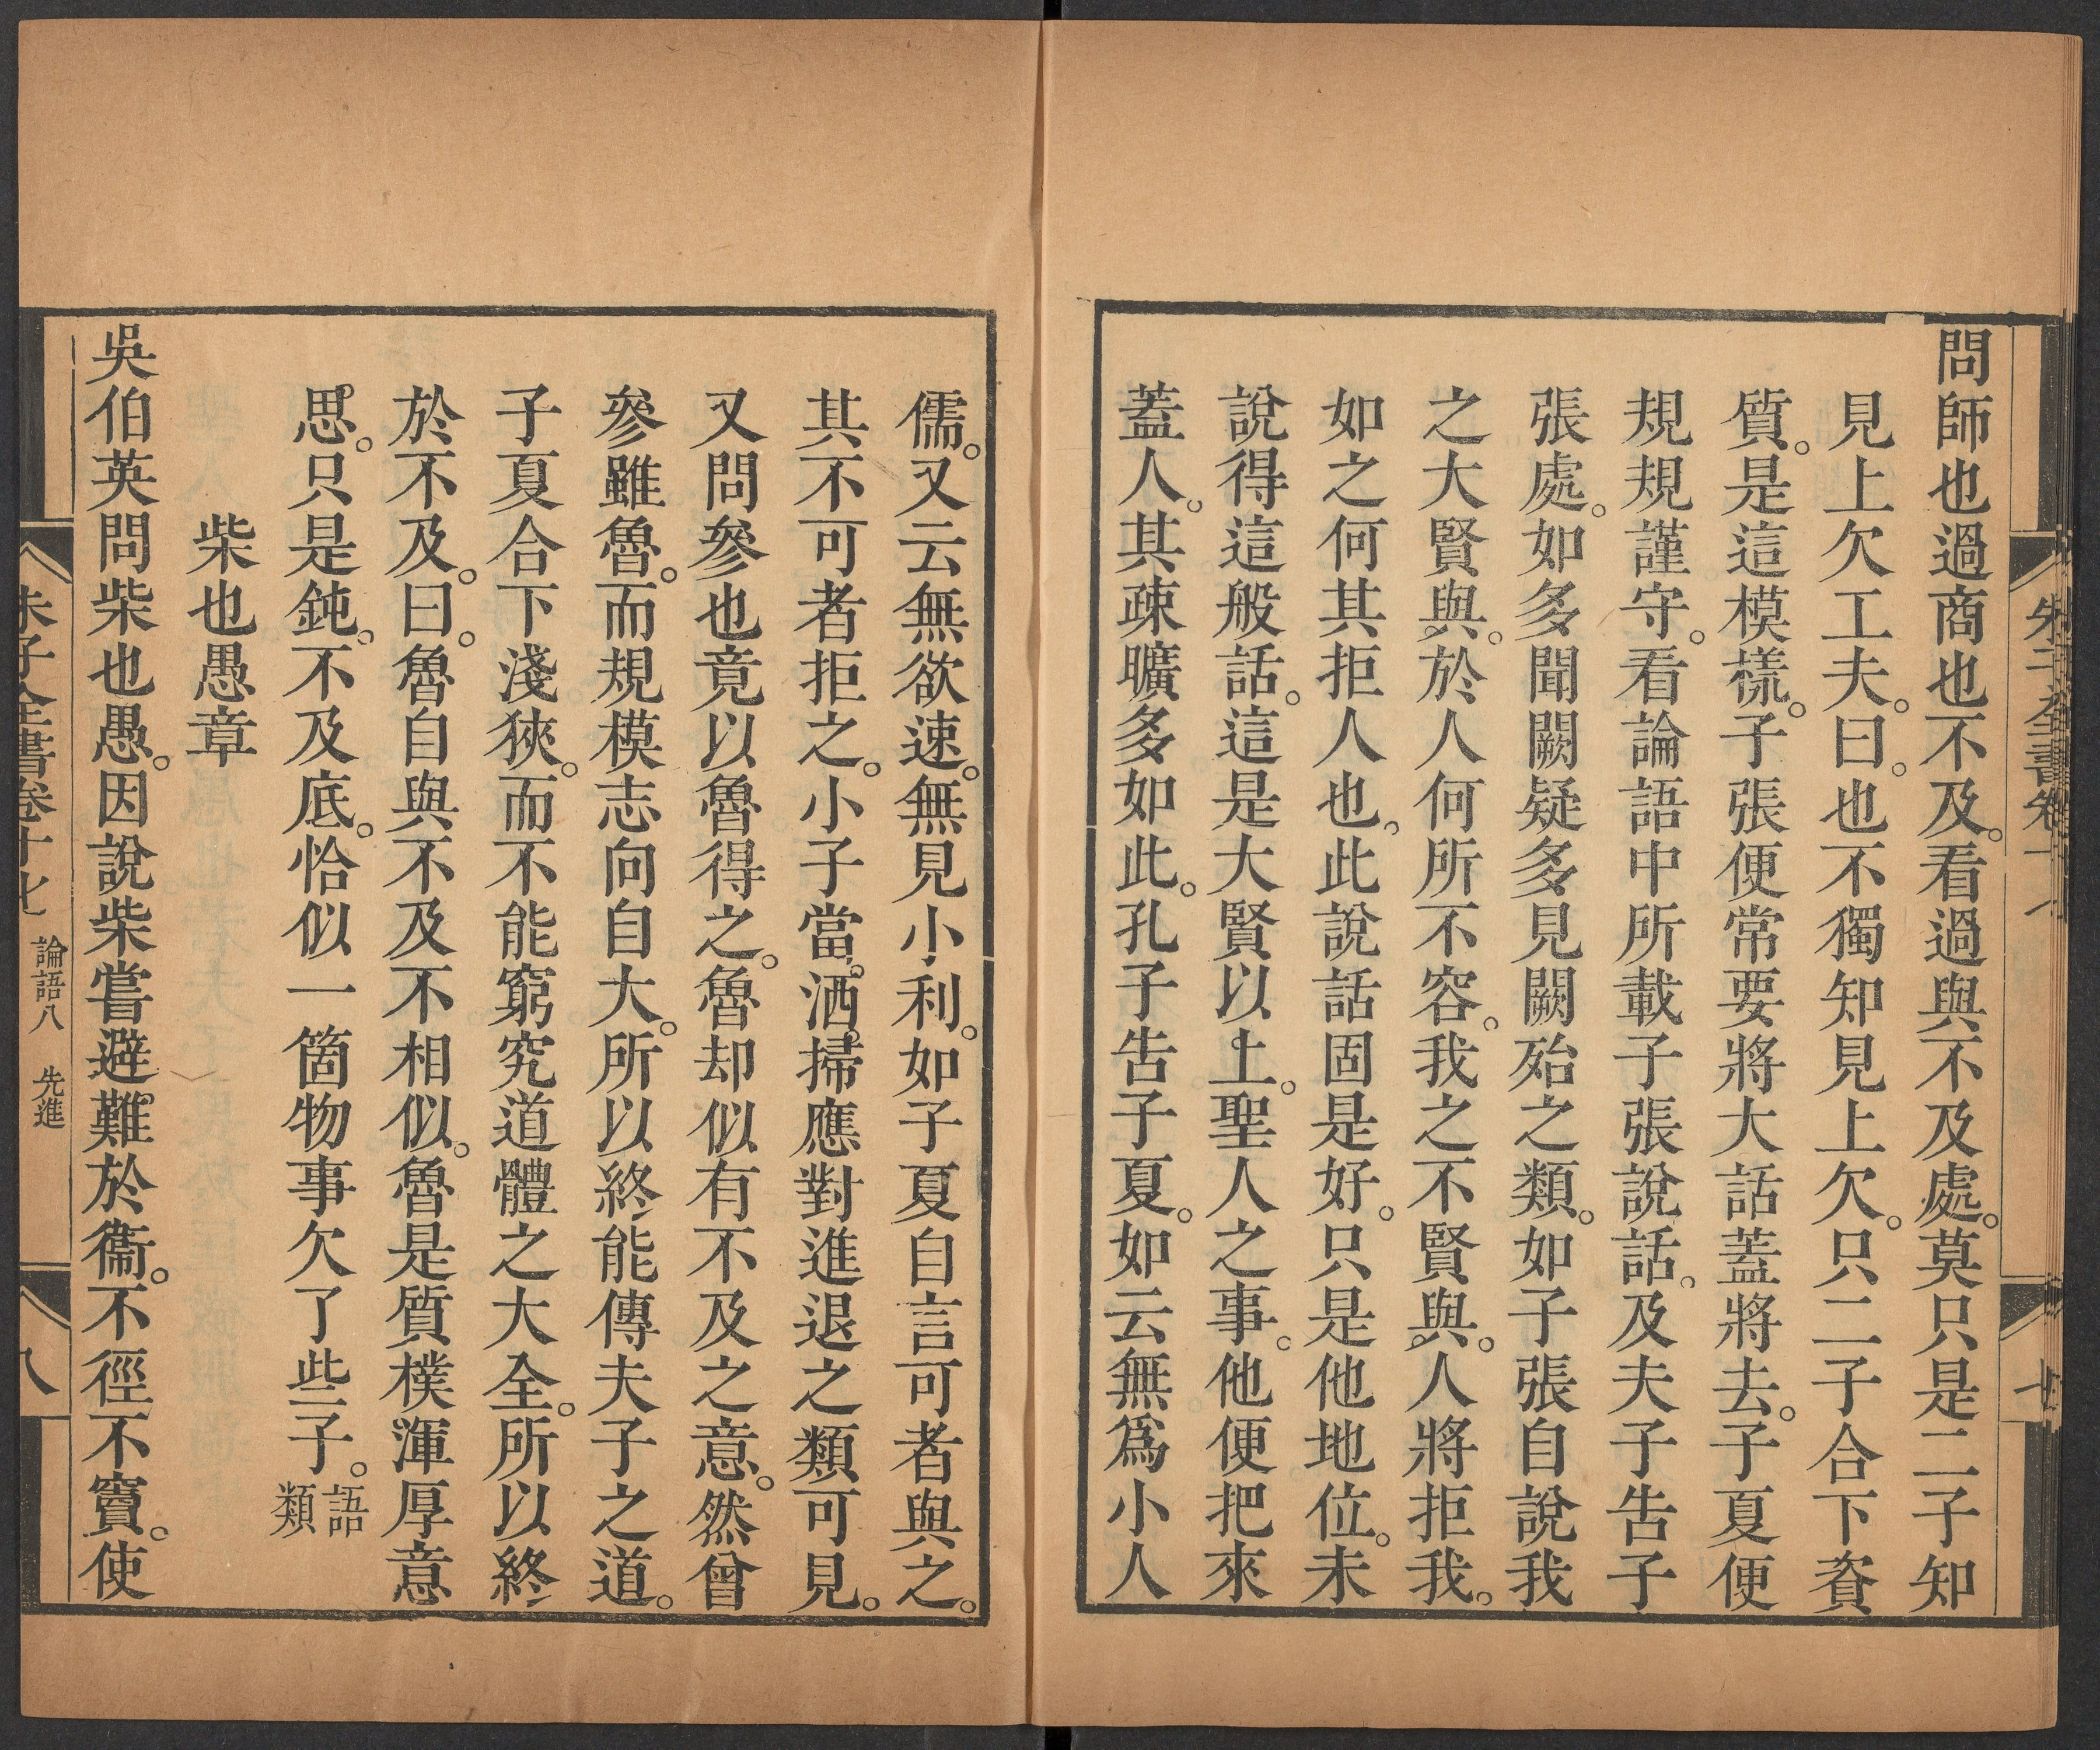 問師也過商也不及。看過與不及處。莫只是二子知
見上欠工夫。曰。也不獨知見上欠。只二子合下資
質。是這模樣。子張便常要將大話蓋將去。子夏便
規規謹守。看論語中所載子張說話。及夫子告子
張處。如多聞闕疑多見闕殆之類。如子張自說我
之大賢與。於人何所不容。我之不賢與。人將拒我。
如之何其拒人也。此說話固是好。只是他地位。未
說得這般話。這是大賢以上。聖人之事。他便把來
蓋人。其疎曠多如此。孔子告子夏。如云無爲小人
儒。又云無欲速。無見小利。如子夏自言可者與之。
其不可者拒之。小子當。洒掃應對進退之類可見。
又問參也竟以魯得之。魯却似有不及之意。然曾
參雖魯。而規模志向自大。所以終能傳夫子之道。
子夏合下淺狹。而不能窮究道體之大全。所以終
於不及。曰。魯自與不及不相似。魯是質樸渾厚意
思。只是鈍。不及底。恰似一箇物事欠了些子。語類
柴也愚章
吳伯英問柴也愚。因說柴嘗避難於衞。不徑不竇。使
朱子全書卷十七 論語八 先進
八